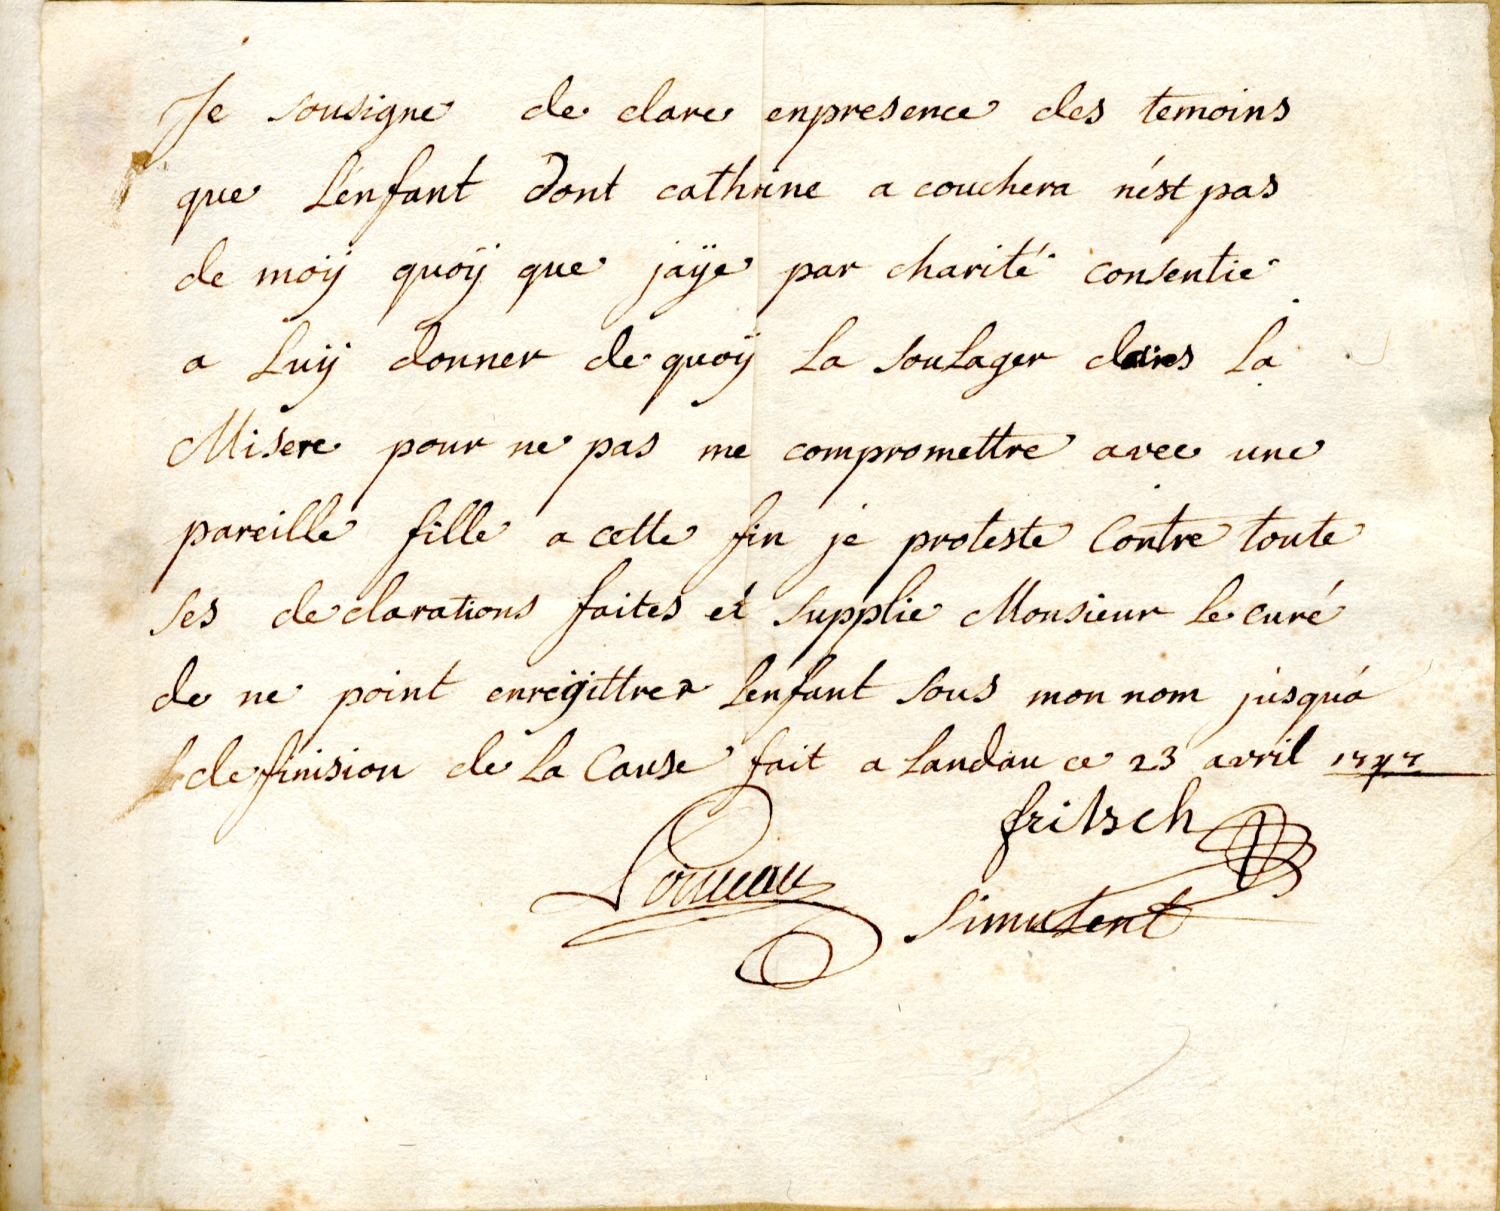 Je sousigne de clare enpresence des temoins
que L'enfant dont cathrine a couchera n'ést pas
de moÿ quoÿ que jaÿe par charité consentie
a Luÿ donner de quoÿ La souLager dans La
Misere pour ne pas me compromettre avec une
pareille fille a cette fin je proteste Contre toute
ses declarations faites et supplie Monsieur Le curé
de ne point enregittrer Lenfant sous mon nom jusqu'á
definision de La Cause fait a Landau ce 23 avril
fritsch